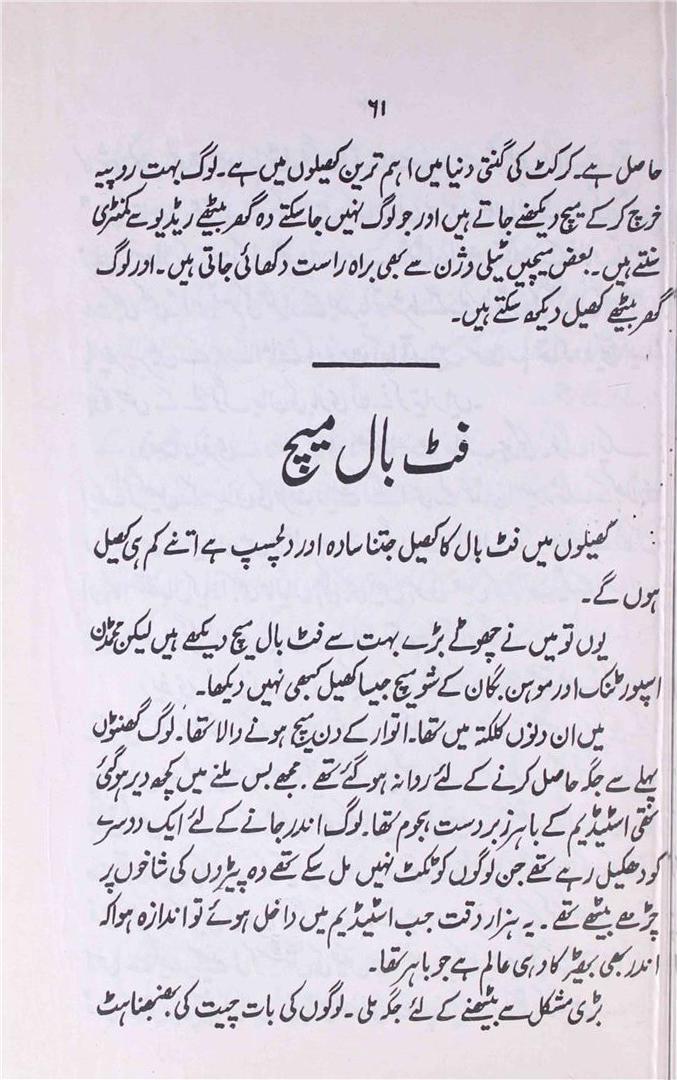 ۶۱
حاصل ہے۔ کرکٹ کی گنتی دنیا میں اہم ترین کھیلوں میں ہے۔ لوگ بہت روپیہ
خرچ کر کے میچ دیکھنے جاتے ہیں اور جو لوگ نہیں جا سکتے وہ گھر بیٹھے ریڈیو سے کمنٹری
سنتے ہیں۔ بعض میچیں ٹیلی وژن سے بھی براہ راست دکھائی جاتی ہیں۔ اور لوگ
گھر بیٹھے کھیل دیکھ سکتے ہیں۔
فٹ بال میچ
کھیلوں میں فٹ بال کا کھیل جتنا سادہ اور دلچسپ ہے اتنے کم ہی کھیل
ہوں گے۔
یوں تو میں نے چھوٹے بڑے بہت سے فٹ بال میچ دیکھے ہیں لیکن محمڈن
اسپورٹنگ اور موہن بگان کے شو میچ جیسا کھیل کبھی نہیں دیکھا۔
میں ان دنوں کلکتہ میں تھا۔ اتوار کے دن میچ ہونے والا تھا۔ لوگ گھنٹوں
پہلے سے جگہ حاصل کرنے کے لئے روانہ ہو گئے تھے۔ مجھے بس ملنے میں کچھ دیر ہو گئی
تھی اسٹیڈیم کے باہر زبردست ہجوم تھا۔ لوگ اندر جانے کے لئے ایک دوسرے
کو دھکیل رہے تھے جن لوگوں کو ٹکٹ نہیں مل سکے تھے وہ پیڑوں کی شاخوں پر
چڑھے بیٹھے تھے۔ بہ ہزار دقت جب اسٹیڈیم میں داخل ہوئے تو اندازہ ہوا کہ
اندر بھی بھیڑ کا وہی عالم ہے جو باہر تھا۔
بڑی مشکل سے بیٹھنے کے لئے جگہ ملی۔ لوگوں کی بات چیت کی بھنبھناہٹ